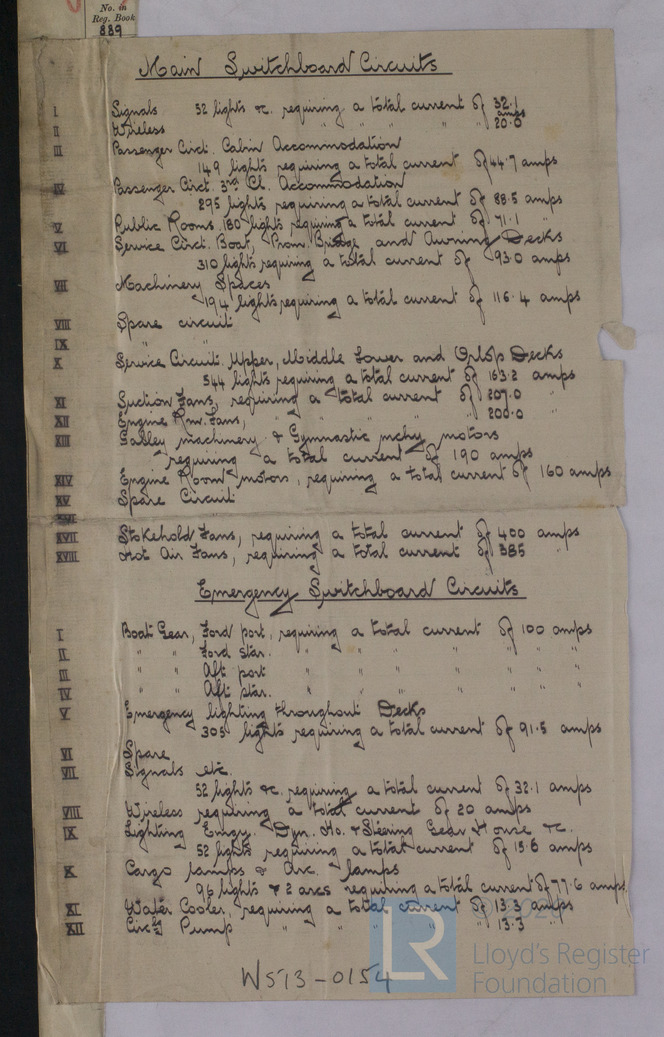 No. in
Reg. Book
889
Main Switchboard Circuits
I Signals 52 lights &c. requiring a total current of 32.1 amps
II Wireless " " " " 20.0
III Passenger Circt. Cabin Accommodation
149 lights requiring a total current of 44.7 amps
IV Passenger Circt. 3rd Cl. Accommodation
295 lights requiring a total current of 88.5 amps
V Public Rooms. 180 lights requiring a total current of 71.1 "
VI Service Circt. Boat, Prom. Bridge and Awning Decks
310 lights requiring a total current of 93.0 amps
VII Machinery Spaces
194 lights requiring a total current of 116.4 amps
VIII Spare circuit
IX " "
X Service Circuit. Upper, Middle Lower and Orlop Decks
544 lights requiring a total current of 163.2 amps
XI Suction Fans, requiring a total current of 207.0 "
XII Engine Rm. Fans, " " " " " 200.0 "
XIII Galley machinery & Gymnastic mchy motors
requiring a total current of 190 amps
XIV Engine Room motors, requiring a total current of 160 amps
XV Spare Circuit
XVI
XVII Stokehold Fans, requiring a total current of 400 amps
XVIII Hot Air Fans, requiring a total current of 385 "
Emergency Switchboard Circuits
I Boat Gear, Ford port, requiring a total current of 100 amps
II " " Ford star. " " " " " " "
III " " Aft port " " " " " "
IV " " Aft star. " " " " " "
V Emergency lighting throughout Decks
305 lights requiring a total current of 91.5 amps
VI Spare
VII Signals etc.
52 lights &c. requiring a total current of 32.1 amps
VIII Wireless requiring a total current of 20 amps
IX Lighting Emgy. Dyn. Ho. & Steering Gear House &c.
52 lights requiring a total current of 15.6 amps
X Cargo Lamps & Arc. lamps
96 lights & 2 arcs requiring a total current of 77.6 amps
XI Water Cooler, requiring a total current of 13.3 amps
XII Circg Pump " " " " " 13.3 "
W513-0154
LR
Lloyd's Register
Foundation